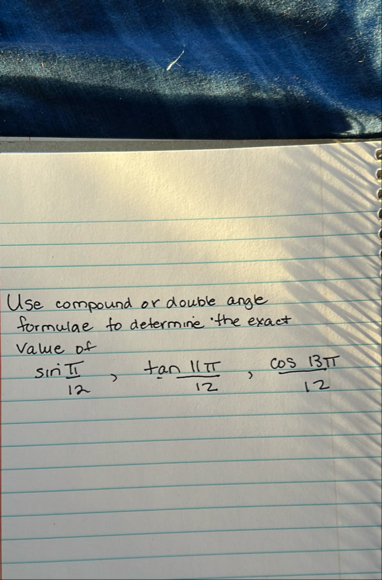 Use compound or double angle
formulae to determine the exact
value of
sin π/12 , tan 11π/12 , cos 13π/12